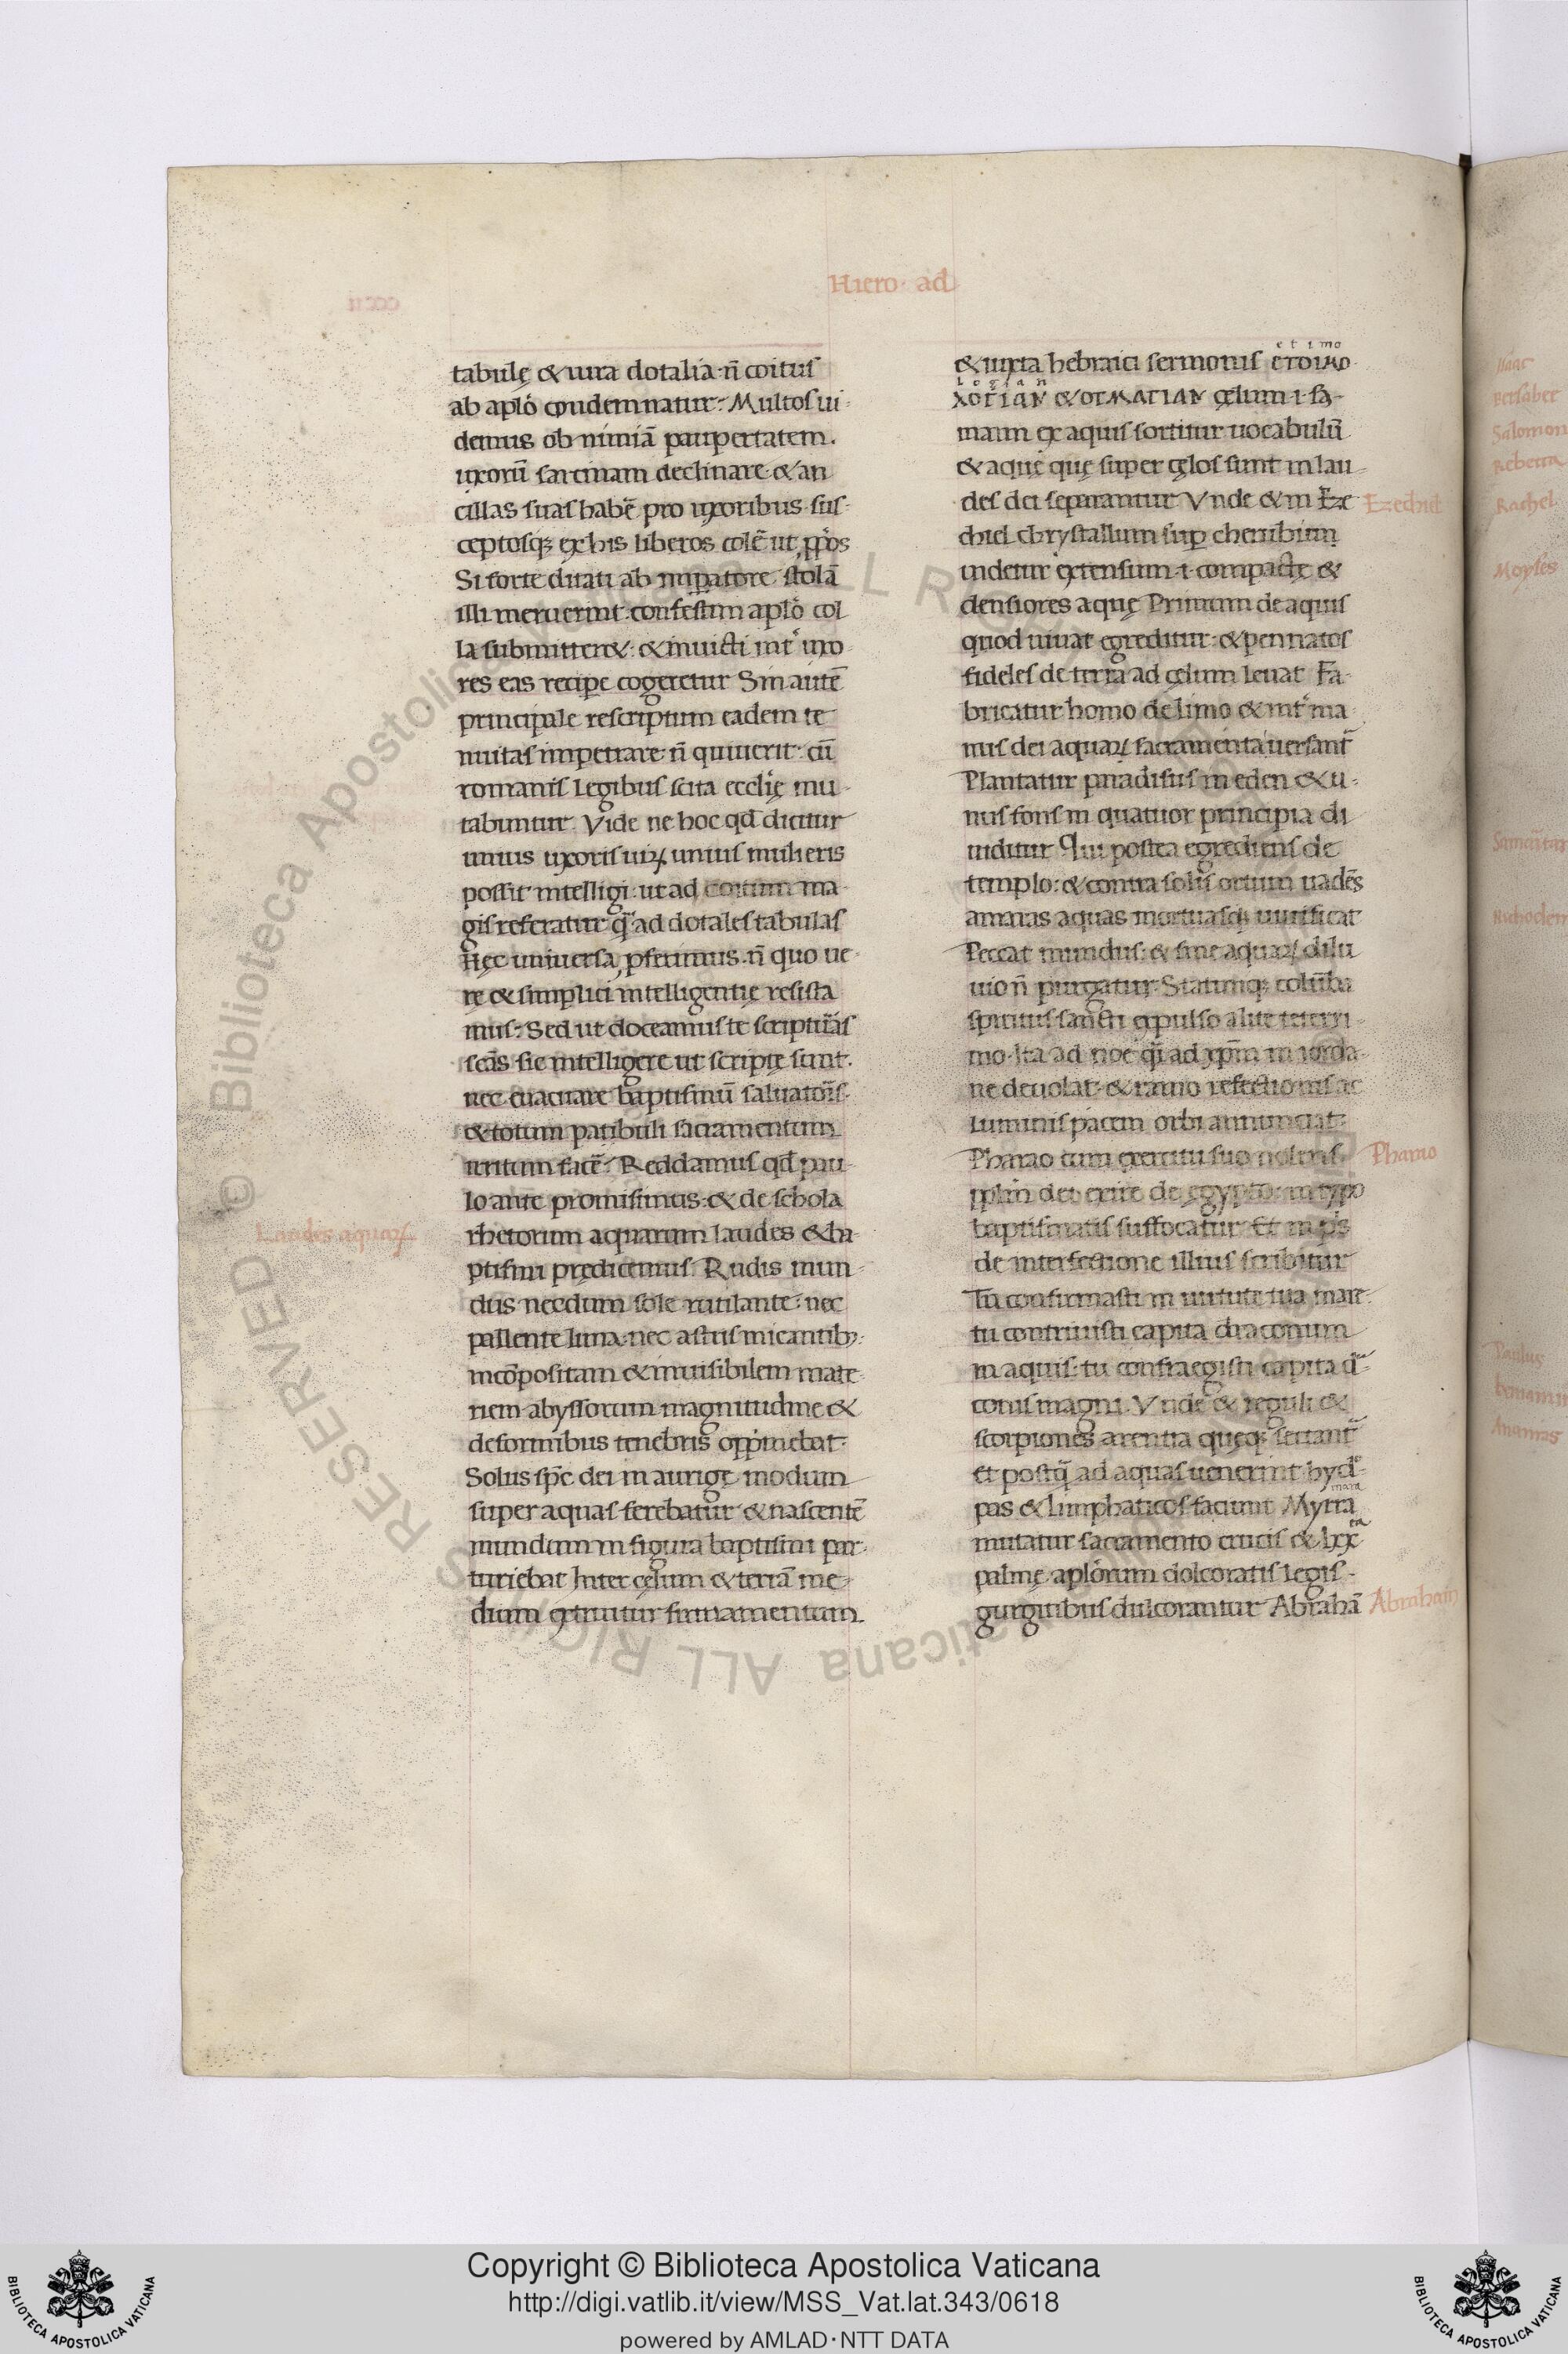 Hiero· ad
tabulę & iura dotalia·n̄ coitus
ab aplo᷒ condemnatur·Multos ui-
demus ob nimiā paupertatem.
uxorū sarcinam declinare·& an
cillas suas habē pro uxoribus·sus-
ceptosq; ex his liberos colē ut ꝓprios
Si forte ditati ab imꝑatore stolā
illi meruerint·confestim aplo᷒ col
la submitteret:& inuicti int̄ uxo-
res eas recipe cogeretur Sin autē
principale rescriptum eadem te
nuitas impetrare n̄ quiuerit·cū
romanis Legibus scita eccl̄ię mu-
tabuntur. Vide ne hoc qd̄ dicitur
unius uxoris uiꝝ unius mulieris
possit intelligi·ut ad coitum ma-
gis referatur q̄ ad dotales tabulas
Hęc uniuersa ꝓferimus·n̄ quo ue-
rę & simplici intelligentię resista
mus·Sed ut doceamus te scripturas
sc̄as sic intelligere ut scriptę sunt.
nec euacuare baptismū saluatoris·
& totum patibuli sacramentum
irritum facē·Reddamus qd̄ pau-
lo ante promisimus:& de schola
rhetorum aquarum laudes & ba-
ptismi prędicemus. Rudis mun-
dus necdum sole rutilante: nec
pallente luna·nec astris micantib;·
incōpositam & inuisibilem mate
riem abyssorum magnitudine &
deformibus tenebris opprimebat·
Solus sp̄c dei in aurigę modum
super aquas ferebatur & nascentē
mundum in figura baptismi par-
turiebat Inter cęlum & terrā me-
dium extruitur firmamentum
Laudes aquaꝝ
etimo
& iuxta hebraici sermonis ετοιμο
logian
λοΓΙΑΝ & οΓΜΑΓΙΑΝ cęlum·ı·sa-
maim ex aquis sortitur uocabulū
& aquę quę super cęlos sunt in lau-
des dei separantur Vnde & in Eze
chiel chrystallum suꝑ cherubim
uidetur extensum·ı·compactę &
densiores aquę Primum de aquis
quod uiuat egreditur:& pennatos
fideles de terra ad cęlum leuat Fa-
bricatur homo de limo & int̄ ma
nus dei aquaꝝ sacramenta uersant̄
Plantatur paradisus in eden & u-
nus fons in quatuor principia di
uiditur Qui postea egrediens de
templo:& contra solis ortum uadēs
amaras aquas mortuasq; uiuificat
Peccat mundus:& sine aquaꝝ dilu
uio n̄ purgatur·Statimq; colūba
spiritus sancti expulso alite teterri-
mo·Ita ad noe q̄si ad xpm̄ in iorda-
ne deuolat·& ramo refectionis ac
Luminis pacem orbi annunciat·
Pharao cum exercitu suo nolens
ppl̄m dei exire de ęgypto·in typo
baptismatis suffocatur Et in ps
de interfectione illius scribitur
Tu confirmasti in uirtute tua mare·
tu contriuisti capita draconum
in aquis·tu confraegisti capita dra-
conis magni. Vnde & reguli &
scorpiones arentia quęq; sectant̄
Et postq̄ ad aquas uenerint hydro
pas & limphaticos faciunt Myrra
mara
mutatur sacramento crucis & lxx ta
palmę aplo᷒rum dolcoratis legis-
gurgitibus dulcorantur Abrahā
Ezechiel
Pharao
Abraham
Isaac
Bersabee
Salomon
Rebecca
Rachel
Moyses
Paulus
Ananias
© Biblioteca Apostolica Vaticana ALL RIGHTS RESERVED
Copyright © Biblioteca Apostolica Vaticana
http://digi.vatlib.it/view/MSS_Vat.lat.343/0618
powered by AMLAD·NTT DATA
BIBLIOTECA APOSTOLICA VATICANA
BIBLIOTECA APOSTOLICA VATICANA